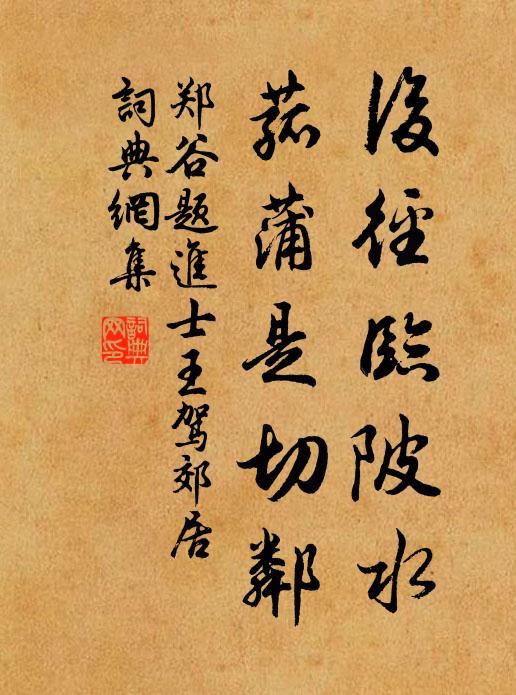 後徑臨陂水
菰蒲是切鄰
郑谷题進士王驾郊居
詞典網集
詞典网印